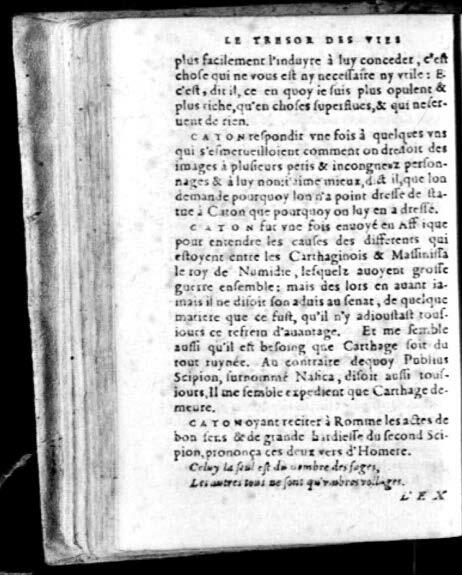 LE TRESOR DES VIES
plus facilement l'induyre à luy conceder, c'est
chose qui ne vous est ny necessaire ny vtile: E
c'est, dit il, ce en quoy ie suis plus opulent &
plus riche, qu'en choses superflues, & qui ne ser-
uent de rien.
CATON respondit vne fois à quelques vns
qui s'esmerueilloient comment on dressoit des
images à plusieurs petis & incongneuz person-
nages & à luy non: i'aime mieux, dist il, que lon
demande pourquoy lon n'a point dresse de sta-
tue à Caton que pourquoy on luy en a dressé.
CATON fut vne fois enuoyé en Affrique
pour entendre les causes des differents qui
estoyent entre les Carthaginois & Massinissa
le roy de Numidie, lesquelz auoyent grosse
guerre ensemble: mais des lors en auant ia-
mais il ne disoit son aduis au senat, de quelque
matiere que ce fust, qu'il n'y adioustast tous-
iours ce refrein d'auantage. Et me semble
aussi qu'il est besoing que Carthage soit du
tout ruynée. Au contraire dequoy Publius
Scipion, surnommé Nasica, disoit aussi tous-
iours, Il me semble expedient que Carthage de-
meure.
CATON oyant reciter à Romme les actes de
bon sens & de grande hardiesse du second Sci-
pion, prononça ces deux vers d'Homere.
Celuy la seul est du nombre des sages,
Les autres tous ne sont qu'vmbres vollages.
L'EX